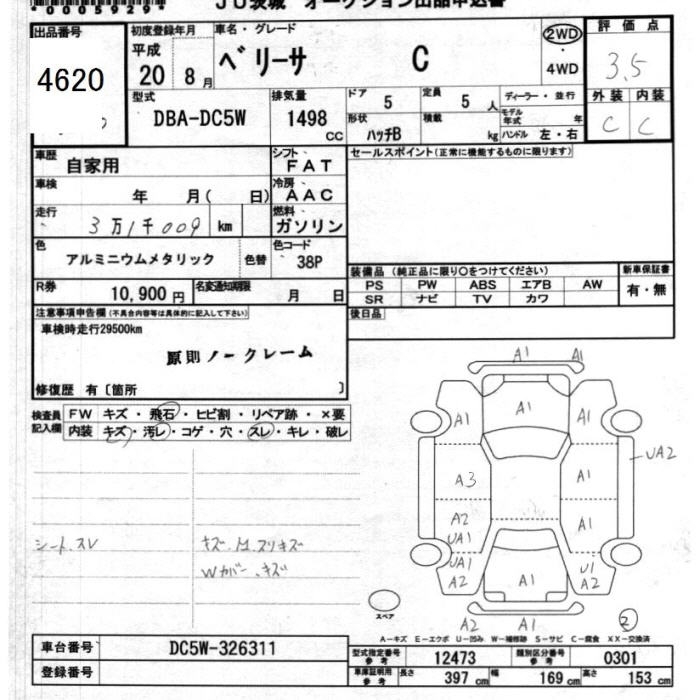 *00059294
JU茨城 オークション出品申込書
出品番号 初度登録年月 車名・グレード 2WD 評価点
4620 平成 20 8月 ベリーサ C 4WD 3.5
型式 排気量 ドア 5 定員 5人 ディーラー・並行 外装 内装
DBA-DC5W 1498 CC 形状 ハッチB 積載 kg モデル年式 年 ハンドル 左・右 C C
車歴 自家用 シフト FAT セールスポイント(正常に機能するものに限ります)
車検 年 月( 日) 冷房 AAC
走行 3万1千009 km 燃料 ガソリン
色 アルミニウムメタリック 色替 色コード 38P
装備品 (純正品に限り○をつけてください) 新車保証書
R券 10,900円 名変通知期限 月 日 PS PW ABS エアB AW 有・無
SR ナビ TV カワ
注意事項申告欄(不具合内容等は具体的に記入して下さい) 後日品
車検時走行29500km
原則ノークレーム
修復歴 有〔箇所 〕
検査員記入欄 FW キズ・飛石・ヒビ割・リペア跡・×要
内装 キズ・汚レ・コゲ・穴・スレ・キレ・破レ
シート、スレ キズ、M.スリキズ
Wカバー、キズ
A1 A1
A1 A1 A1
UA2
A3 A1
A2 A1
UA1
UA1 U1
A2 A1 A2
A2 A1 2
スペア
A-キズ E-エクボ U-凹み W-補修跡 S-サビ C-腐食 XX-交換済
車台番号 DC5W-326311 型式指定番号 参考 12473 類別区分番号 参考 0301
登録番号 車庫証明用 参考 長さ 397 cm 幅 169 cm 高さ 153 cm